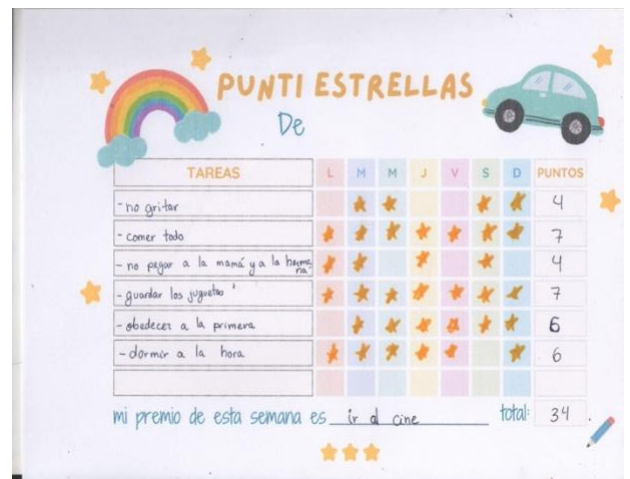 PUNTI ESTRELLAS
De
TAREAS L M M J V S D PUNTOS
- no gritar 4
- comer todo 7
- no pegar a la mamá y a la hermana 4
- guardar los juguetes 7
- obedecer a la primera 6
- dormir a la hora 6
mi premio de esta semana es ir al cine total: 34